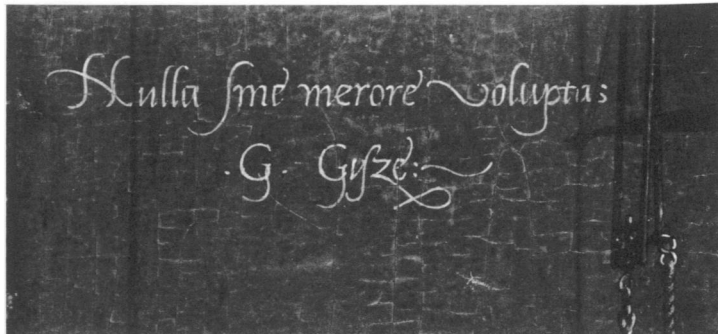 Nulla ſine merore voluptas
·G· Giſze: